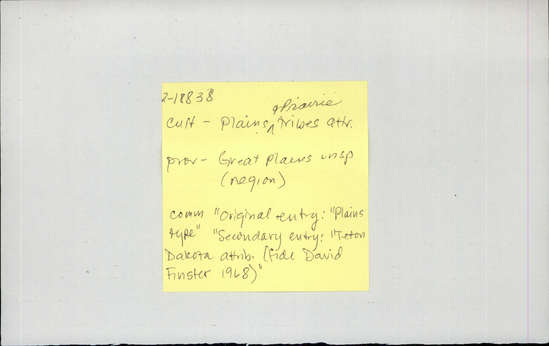 2-18838
& Prairie
Cult - Plains ^ tribes attr.
prov - Great Plains unsp
(region)
comm "Original entry: "Plains
type" "Secondary entry: "Teton
Dakota attrib. (fide David
Finster 1968)"